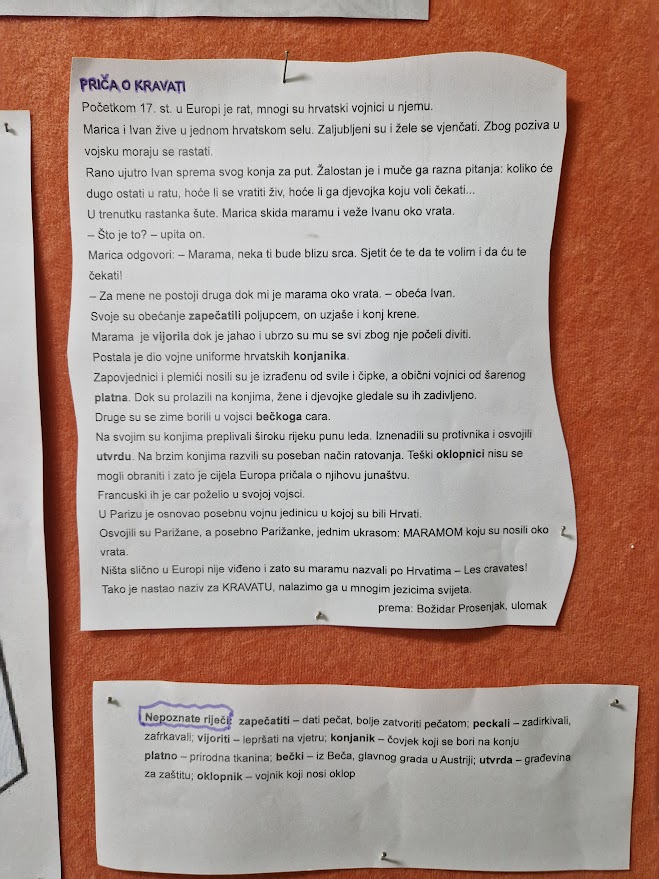 PRIČA O KRAVATI
Početkom 17. st. u Europi je rat, mnogi su hrvatski vojnici u njemu.
Marica i Ivan žive u jednom hrvatskom selu. Zaljubljeni su i žele se vjenčati. Zbog poziva u
vojsku moraju se rastati.
Rano ujutro Ivan sprema svog konja za put. Žalostan je i muče ga razna pitanja: koliko će
dugo ostati u ratu, hoće li se vratiti živ, hoće li ga djevojka koju voli čekati...
U trenutku rastanka šute. Marica skida maramu i veže Ivanu oko vrata.
– Što je to? – upita on.
Marica odgovori: – Marama, neka ti bude blizu srca. Sjetit će te da te volim i da ću te
čekati!
– Za mene ne postoji druga dok mi je marama oko vrata. – obeća Ivan.
Svoje su obećanje zapečatili poljupcem, on uzjaše i konj krene.
Marama je vijorila dok je jahao i ubrzo su mu se svi zbog nje počeli diviti.
Postala je dio vojne uniforme hrvatskih konjanika.
Zapovjednici i plemići nosili su je izrađenu od svile i čipke, a obični vojnici od šarenog
platna. Dok su prolazili na konjima, žene i djevojke gledale su ih zadivljeno.
Druge su se zime borili u vojsci bečkoga cara.
Na svojim su konjima preplivali široku rijeku punu leda. Iznenadili su protivnika i osvojili
utvrdu. Na brzim konjima razvili su poseban način ratovanja. Teški oklopnici nisu se
mogli obraniti i zato je cijela Europa pričala o njihovu junaštvu.
Francuski ih je car poželio u svojoj vojsci.
U Parizu je osnovao posebnu vojnu jedinicu u kojoj su bili Hrvati.
Osvojili su Parižane, a posebno Parižanke, jednim ukrasom: MARAMOM koju su nosili oko
vrata.
Ništa slično u Europi nije viđeno i zato su maramu nazvali po Hrvatima – Les cravates!
Tako je nastao naziv za KRAVATU, nalazimo ga u mnogim jezicima svijeta.
prema: Božidar Prosenjak, ulomak
Nepoznate riječi: zapečatiti – dati pečat, bolje zatvoriti pečatom; peckali – zadirkivali,
zafrkavali; vijoriti – lepršati na vjetru; konjanik – čovjek koji se bori na konju
platno – prirodna tkanina; bečki – iz Beča, glavnog grada u Austriji; utvrda – građevina
za zaštitu; oklopnik – vojnik koji nosi oklop